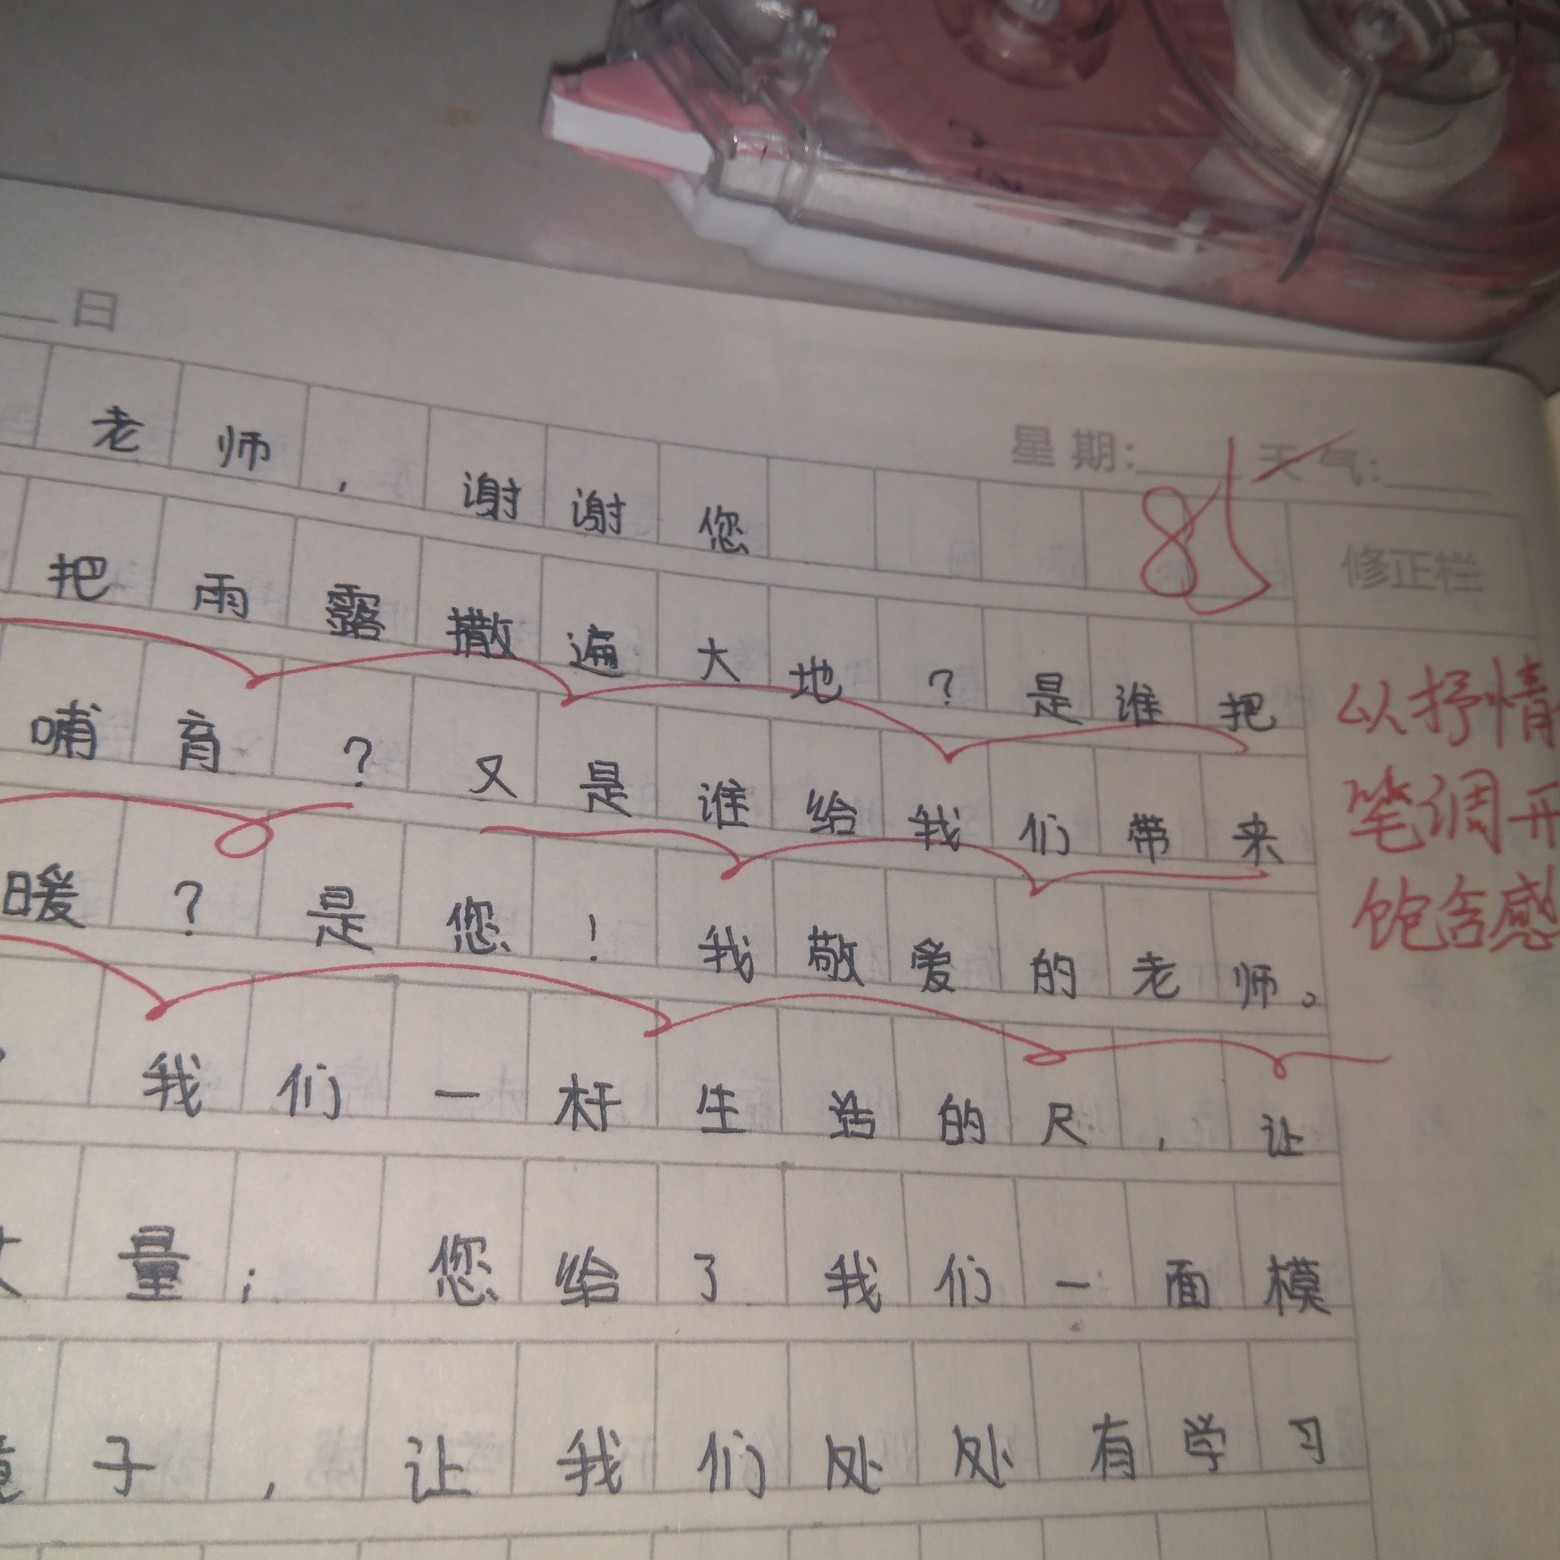 日
星期： 天气：
老师，谢谢您
修正栏
把雨露撒遍大地？是谁把
哺育？又是谁给我们带来
暖？是您！我敬爱的老师。
我们一杆生活的尺，让
量；您给了我们一面模
子，让我们处处有学习
以抒情
笔调开
饱含感